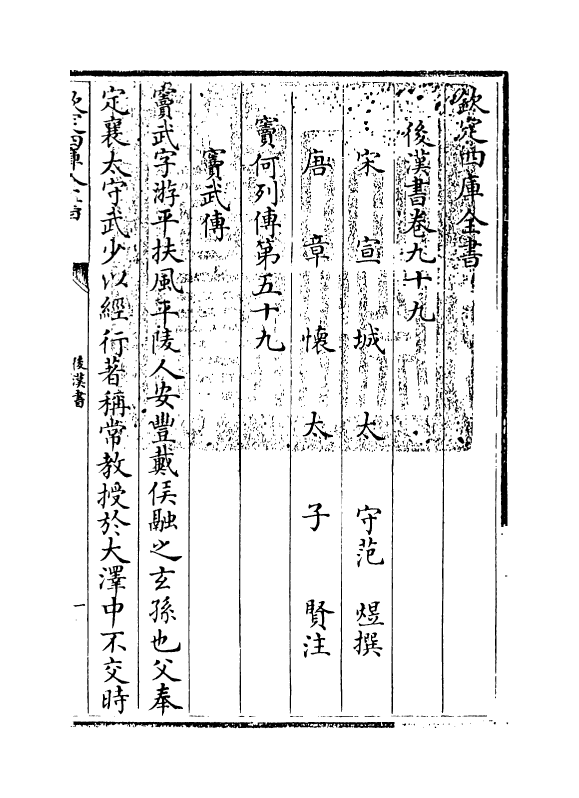 欽定四庫全書
後漢書卷九十九
宋宣城太守范煜撰
唐章懷太子賢注
竇何列傳第五十九
竇武傳
竇武字游平扶風平陵人安豐戴侯融之玄孫也父奉
定襄太守武少以經行著稱常教授於大澤中不交時
欽定四庫全書
後漢書
一